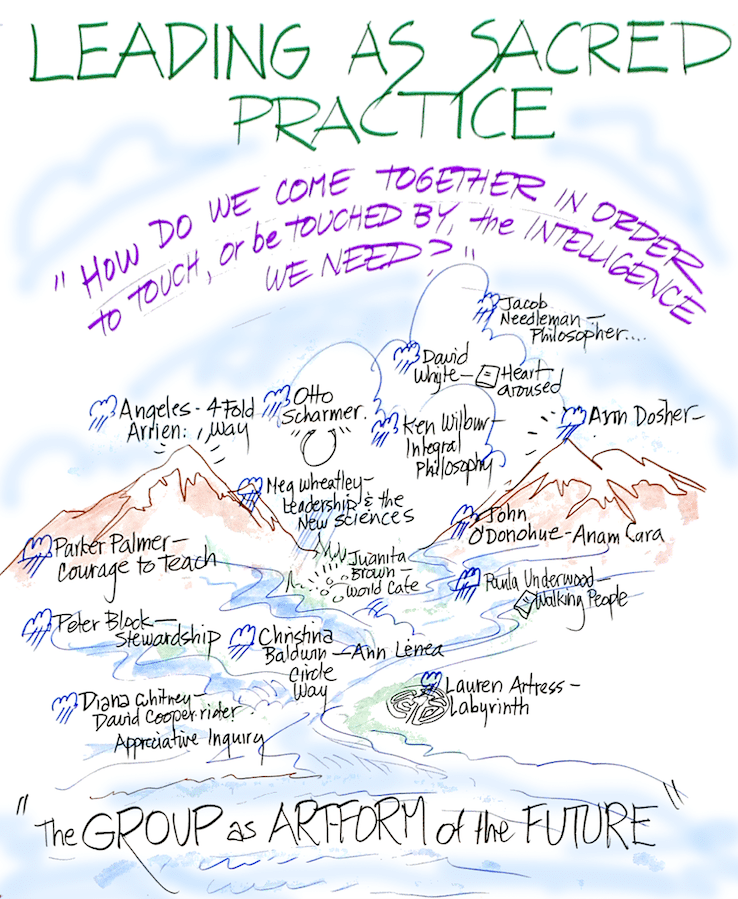 LEADING AS SACRED
PRACTICE
"HOW DO WE COME TOGETHER IN ORDER
TO TOUCH, or be TOUCHED BY, the INTELLIGENCE
WE NEED?"
Jacob
Needleman —
Philosopher....
David
Whyte — Heart
aroused
Angeles - 4 Fold
Arrien: , Way
Otto
Scharmer
Ken Wilbur —
Integral
Philosophy
Ann Dosher —
Meg Wheatley —
Leadership & the
New Sciences
John
O'Donohue - Anam Cara
Parker Palmer —
Courage to Teach
Juanita
Brown —
World Cafe
Paula Underwood —
Walking People
Peter Block —
Stewardship
Christina
Baldwin — Ann Lenea
Circle
Way
Lauren Artress —
Labyrinth
Diana Whitney —
David Cooperrider
Appreciative Inquiry
"The GROUP as ARTFORM of the FUTURE"